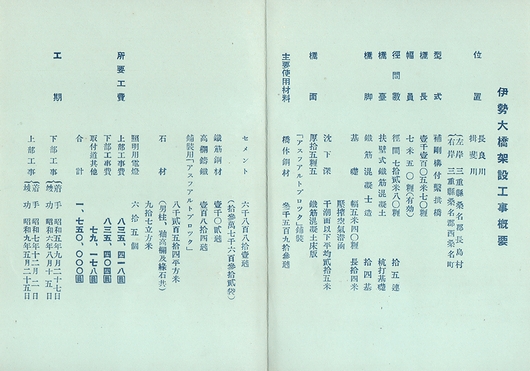 伊勢大橋架設工事概要
位置 長良川 揖斐川
左岸 三重縣桑名郡長島村
右岸 三重縣桑名郡西桑名町
型式 補剛桁付繋拱橋
橋長 壹千壹百〇五米七〇糎
幅員 七米五〇糎(有効)
徑間數 徑間七拾貳米八〇糎 拾五連
橋臺 扶壁式鐵筋混凝土 杭打基礎
橋脚 鐵筋混凝土造 拾四基
基礎 幅五米四〇糎 長拾四米
壓搾空氣潜函
沈下深 干潮面以下平均貳拾五米
橋面 厚拾五糎五 鐵筋混凝土床版
「アスフアルトブロツク」舗装
主要使用材料 橋体鋼材 參千五百九拾參瓲
セメント 六千八百八拾壹瓲
(拾參萬七千六百參拾貳袋)
鐵筋鋼材 壹千〇貳瓲
高欄鑄鐵 壹百八拾四瓲
舗装用「アスフアルトブロツク」
八千貳百五拾四平方米
石材 (男柱、袖高欄及縁石共)
九拾七立方米
照明用電燈 六拾五個
所要工費 上部工事費 八三五、四一八圓
下部工事費 八三五、四〇四圓
取付道其他 七九、一七八圓
合計 一、七五〇、〇〇〇圓
工期 下部工事 着手 昭和五年九月二十七日
竣功 昭和六年八月十五日
上部工事 着手 昭和七年十二月二日
竣功 昭和九年五月二十五日